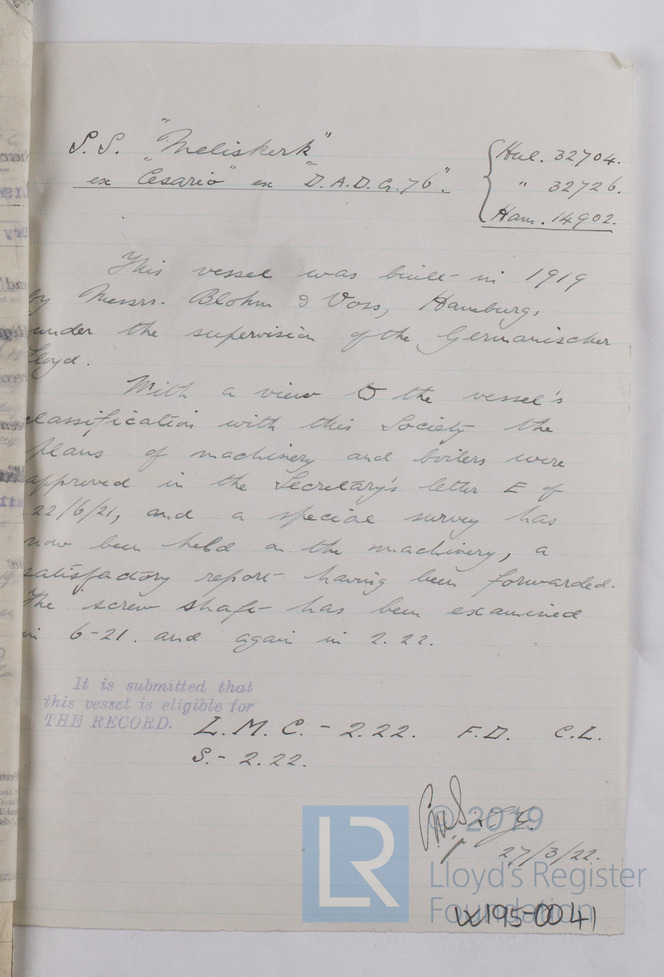 S.S. "Meliskerk"
ex "Cesario" ex "D.A.D.G. 76".
Hul. 32704.
" 32726.
Ham. 14902.
This vessel was built in 1919
by Messrs. Blohm & Voss, Hamburg,
under the supervision of the Germanischer
Lloyd.
With a view to the vessel's
classification with this Society the
plans of machinery and boilers were
approved in the Secretary's letter E of
22/6/21, and a special survey has
now been held on the machinery, a
satisfactory report having been forwarded.
The screw shaft has been examined
in 6-21. and again in 2.22.
It is submitted that
this vessel is eligible for
THE RECORD. L.M.C. - 2.22. F.D. C.L.
S. - 2.22.
27/3/22.
© 2019
LR
Lloyd's Register
Foundation
W195-0041